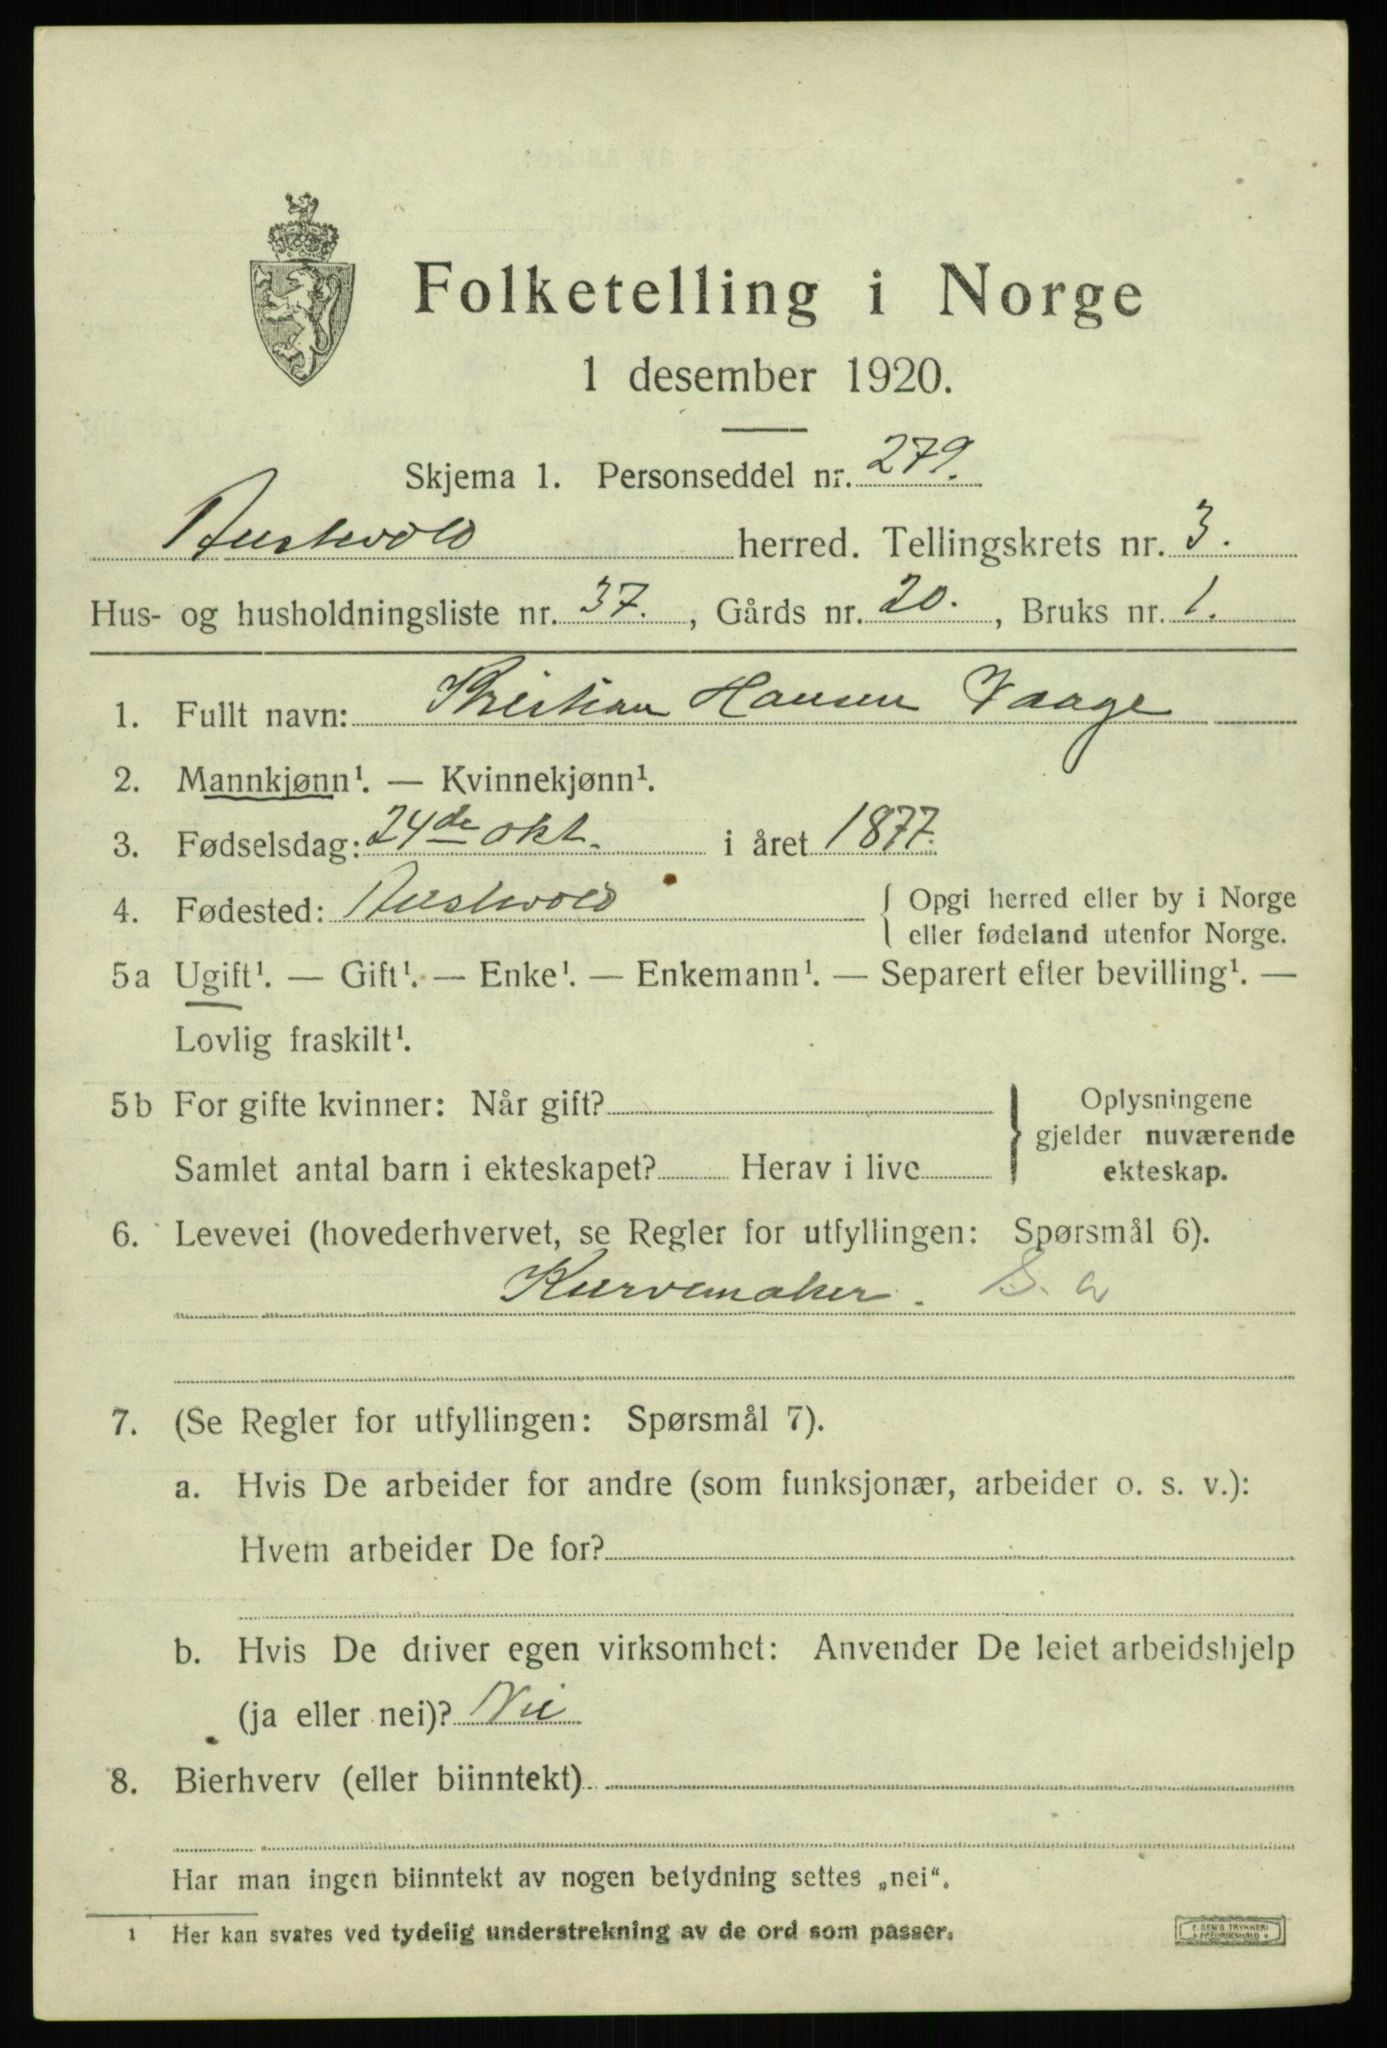 Folketelling i Norge
1 desember 1920.
Skjema 1. Personseddel nr. 279.
Austevold herred. Tellingskrets nr. 3.
Hus- og husholdningsliste nr. 37., Gårds nr. 20., Bruks nr. 1.
1. Fullt navn: Kristian Hansen Vaage
2. Mannkjønn¹. — Kvinnekjønn¹.
3. Fødselsdag: 24de okt. i året 1877.
4. Fødested: Austevold { Opgi herred eller by i Norge
eller fødeland utenfor Norge.
5a Ugift¹. — Gift¹. — Enke¹. — Enkemann¹. — Separert efter bevilling¹. —
Lovlig fraskilt¹.
5b For gifte kvinner: Når gift? } Oplysningene
gjelder nuværende
Samlet antal barn i ekteskapet? Herav i live
ekteskap.
6. Levevei (hovederhvervet, se Regler for utfyllingen: Spørsmål 6).
Kurvemaker.
7. (Se Regler for utfyllingen: Spørsmål 7).
a. Hvis De arbeider for andre (som funksjonær, arbeider o. s. v.):
Hvem arbeider De for?
b. Hvis De driver egen virksomhet: Anvender De leiet arbeidshjelp
(ja eller nei)? Nei
8. Bierhverv (eller biinntekt)
Har man ingen biinntekt av nogen betydning settes „nei“.
1 Her kan svares ved tydelig understrekning av de ord som passer.
E. SEM'S TRYKKERI
FREDRIKSHALD